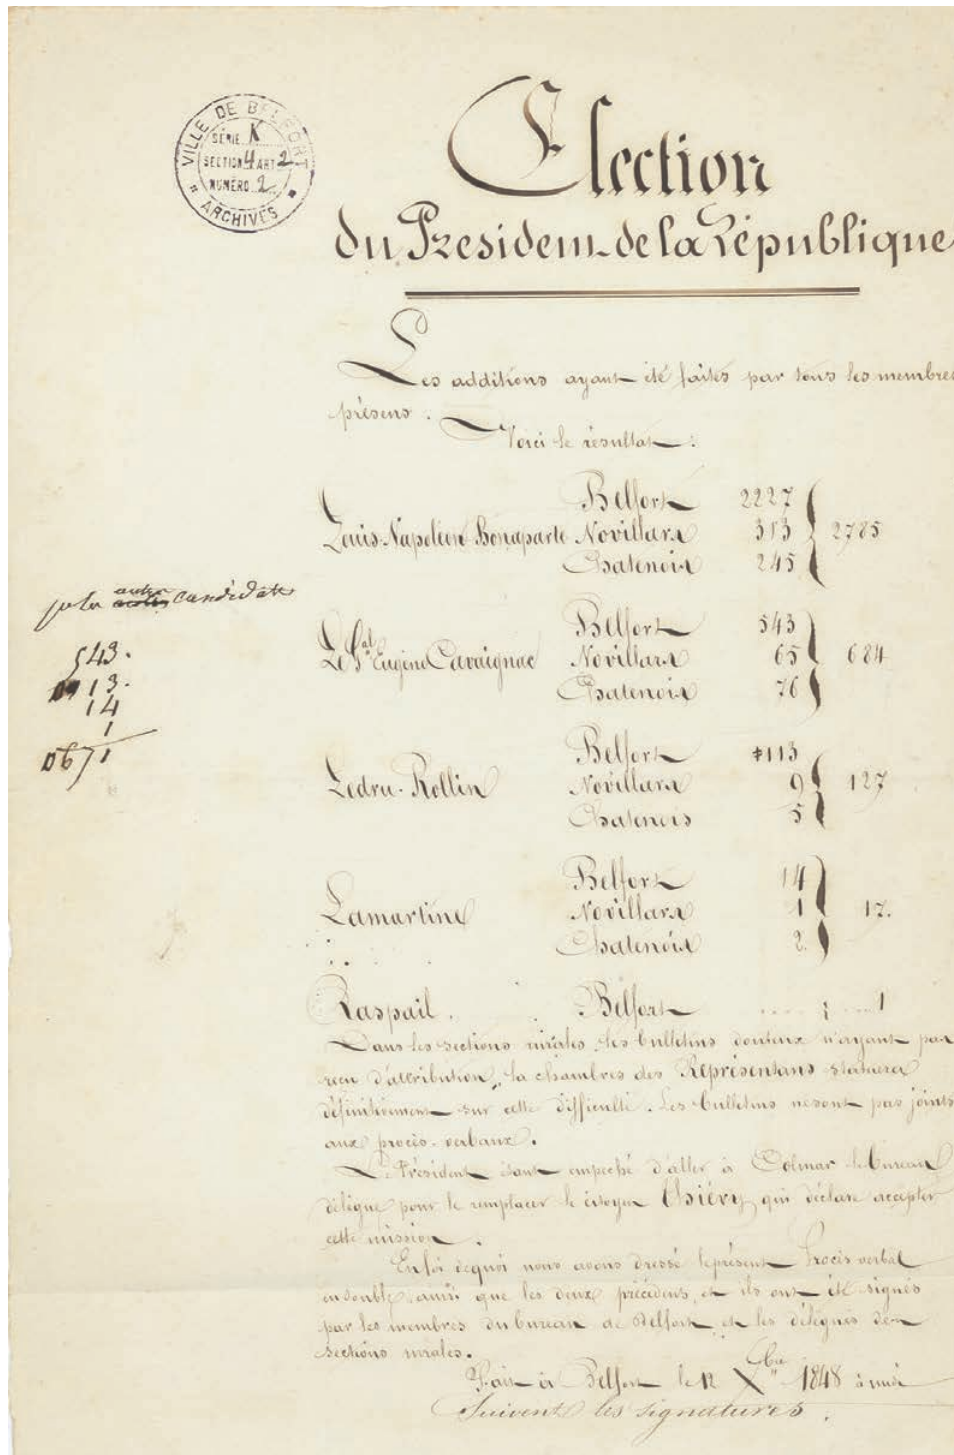 VILLE DE BELFORT
SÉRIE K
SECTION 4 ART 2
NUMÉRO 2
ARCHIVES
Election
du President de la République
Les additions ayant été faites par tous les membres
présens.
Voici le résultat :
Belfort 2227
Louis-Napoléon Bonaparte Novillard 313 2785
Chatenoix 245
autres
pr les candidats
Belfort 543
543.
Le Gal Eugène Cavaignac Novillard 65 684
113.
Chatenoix 76
14
1
Belfort 113
0671
Ledru-Rollin Novillard 9 127
Chatenois 5
Belfort 14
Lamartine Novillard 1 17.
Chatenoix 2.
Raspail. Belfort .... : ....1
Dans les sections rurales, les bulletins douteux n'ayant pas
reçu d'attribution, la chambres des Représentans statuera
définitivement sur cette difficulté. Les bulletins ne sont pas joints
aux procès-verbaux.
Le Président étant empeché d'aller à Colmar le bureau
délègue pour le remplacer le citoyen Thiéry qui déclare accepter
cette mission.
En foi de quoi nous avons dressé le présent Procès verbal
en double, ainsi que les deux précédens, et ils ont été signés
par les membres du bureau de Belfort et les délégués des
sections rurales.
Fait à Belfort le 12 Xbre 1848 à midi
Suivent les signatures.